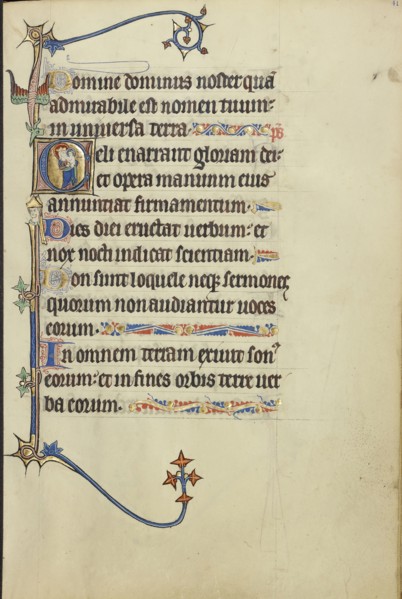 Domine dominus noster quā
admirabile est nomen tuum
in uniuersa terra. ps
Celi enarrant gloriam dei:
et opera manuum eius
annuntiat firmamentum.
Dies diei eructat uerbum: et
nox nocti indicat scientiam.
Non sunt loquele neq; sermones
quorum non audiantur uoces
eorum.
In omnem terram exiuit son⁹
eorum: et in fines orbis terre uer
ba eorum.